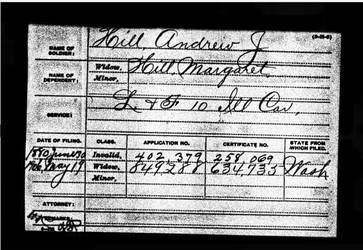 NAME OF SOLDIER: Hill Andrew J
NAME OF DEPENDENT: Widow, Hill Margaret
Minor,
SERVICE: L & F 10 Ill Cav.
DATE OF FILING. CLASS. APPLICATION NO. CERTIFICATE NO. STATE FROM WHICH FILED.
1880 June 30 Invalid, 402 379 259 069
May 19 Widow, 849288 634733 Wash
Minor,
ATTORNEY: